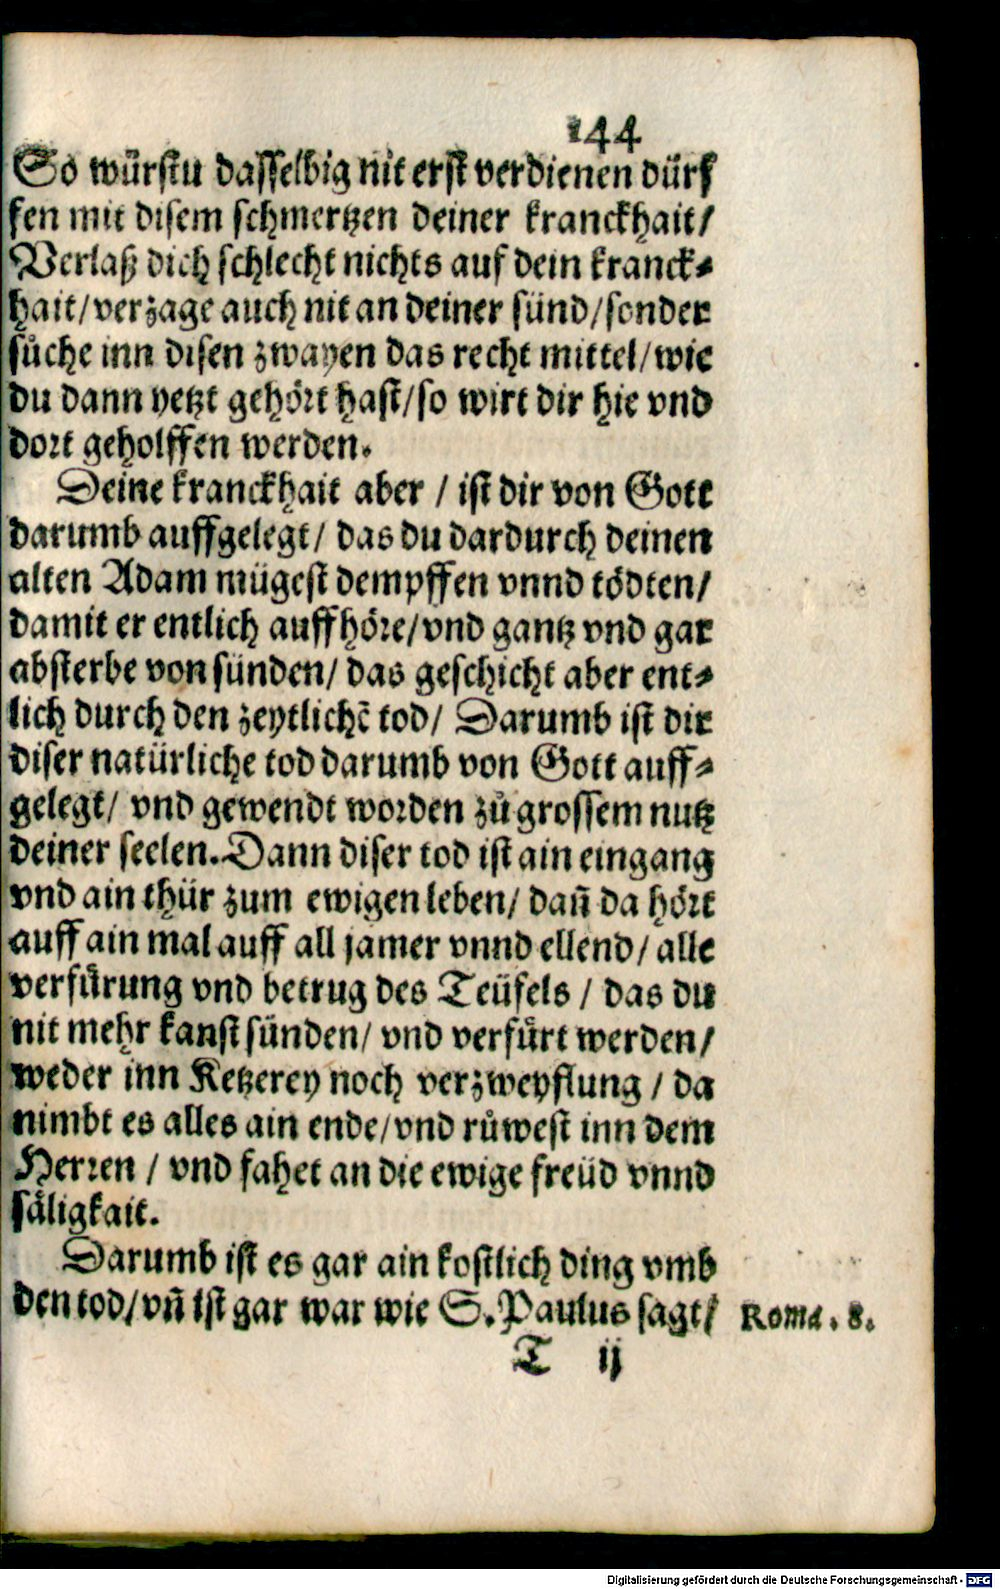 144
So würstu dasselbig nit erst verdienen dürf
fen mit disem schmertzen deiner kranckhait/
Verlaß dich schlecht nichts auf dein kranck⸗
hait/verzage auch nit an deiner sünd/sonder
sůche inn disen zwayen das recht mittel/wie
du dann yetzt gehört hast/so wirt dir hie vnd
dort geholffen werden.
Deine kranckhait aber / ist dir von Gott
darumb auffgelegt/ das du dardurch deinen
alten Adam mügest dempffen vnnd tödten/
damit er entlich auffhöre/vnd gantz vnd gar
absterbe von sünden/ das geschicht aber ent⸗
lich durch den zeytlichē tod/ Darumb ist dir
diser natürliche tod darumb von Gott auff⸗
gelegt/ vnd gewendt worden zů grossem nutz
deiner seelen. Dann diser tod ist ain eingang
vnd ain thür zum ewigen leben/ dañ da hört
auff ain mal auff all jamer vnnd ellend/ alle
verfürung vnd betrug des Teüfels / das du
nit mehr kanst sünden/ vnd verfürt werden/
weder inn Ketzerey noch verzweyflung / da
nimbt es alles ain ende/vnd růwest inn dem
Herren / vnd fahet an die ewige freüd vnnd
säligkait.
Darumb ist es gar ain kostlich ding vmb
den tod/vñ ist gar war wie S. Paulus sagt/
Roma. 8.
T ij
Digitalisierung gefördert durch die Deutsche Forschungsgemeinschaft - DFG